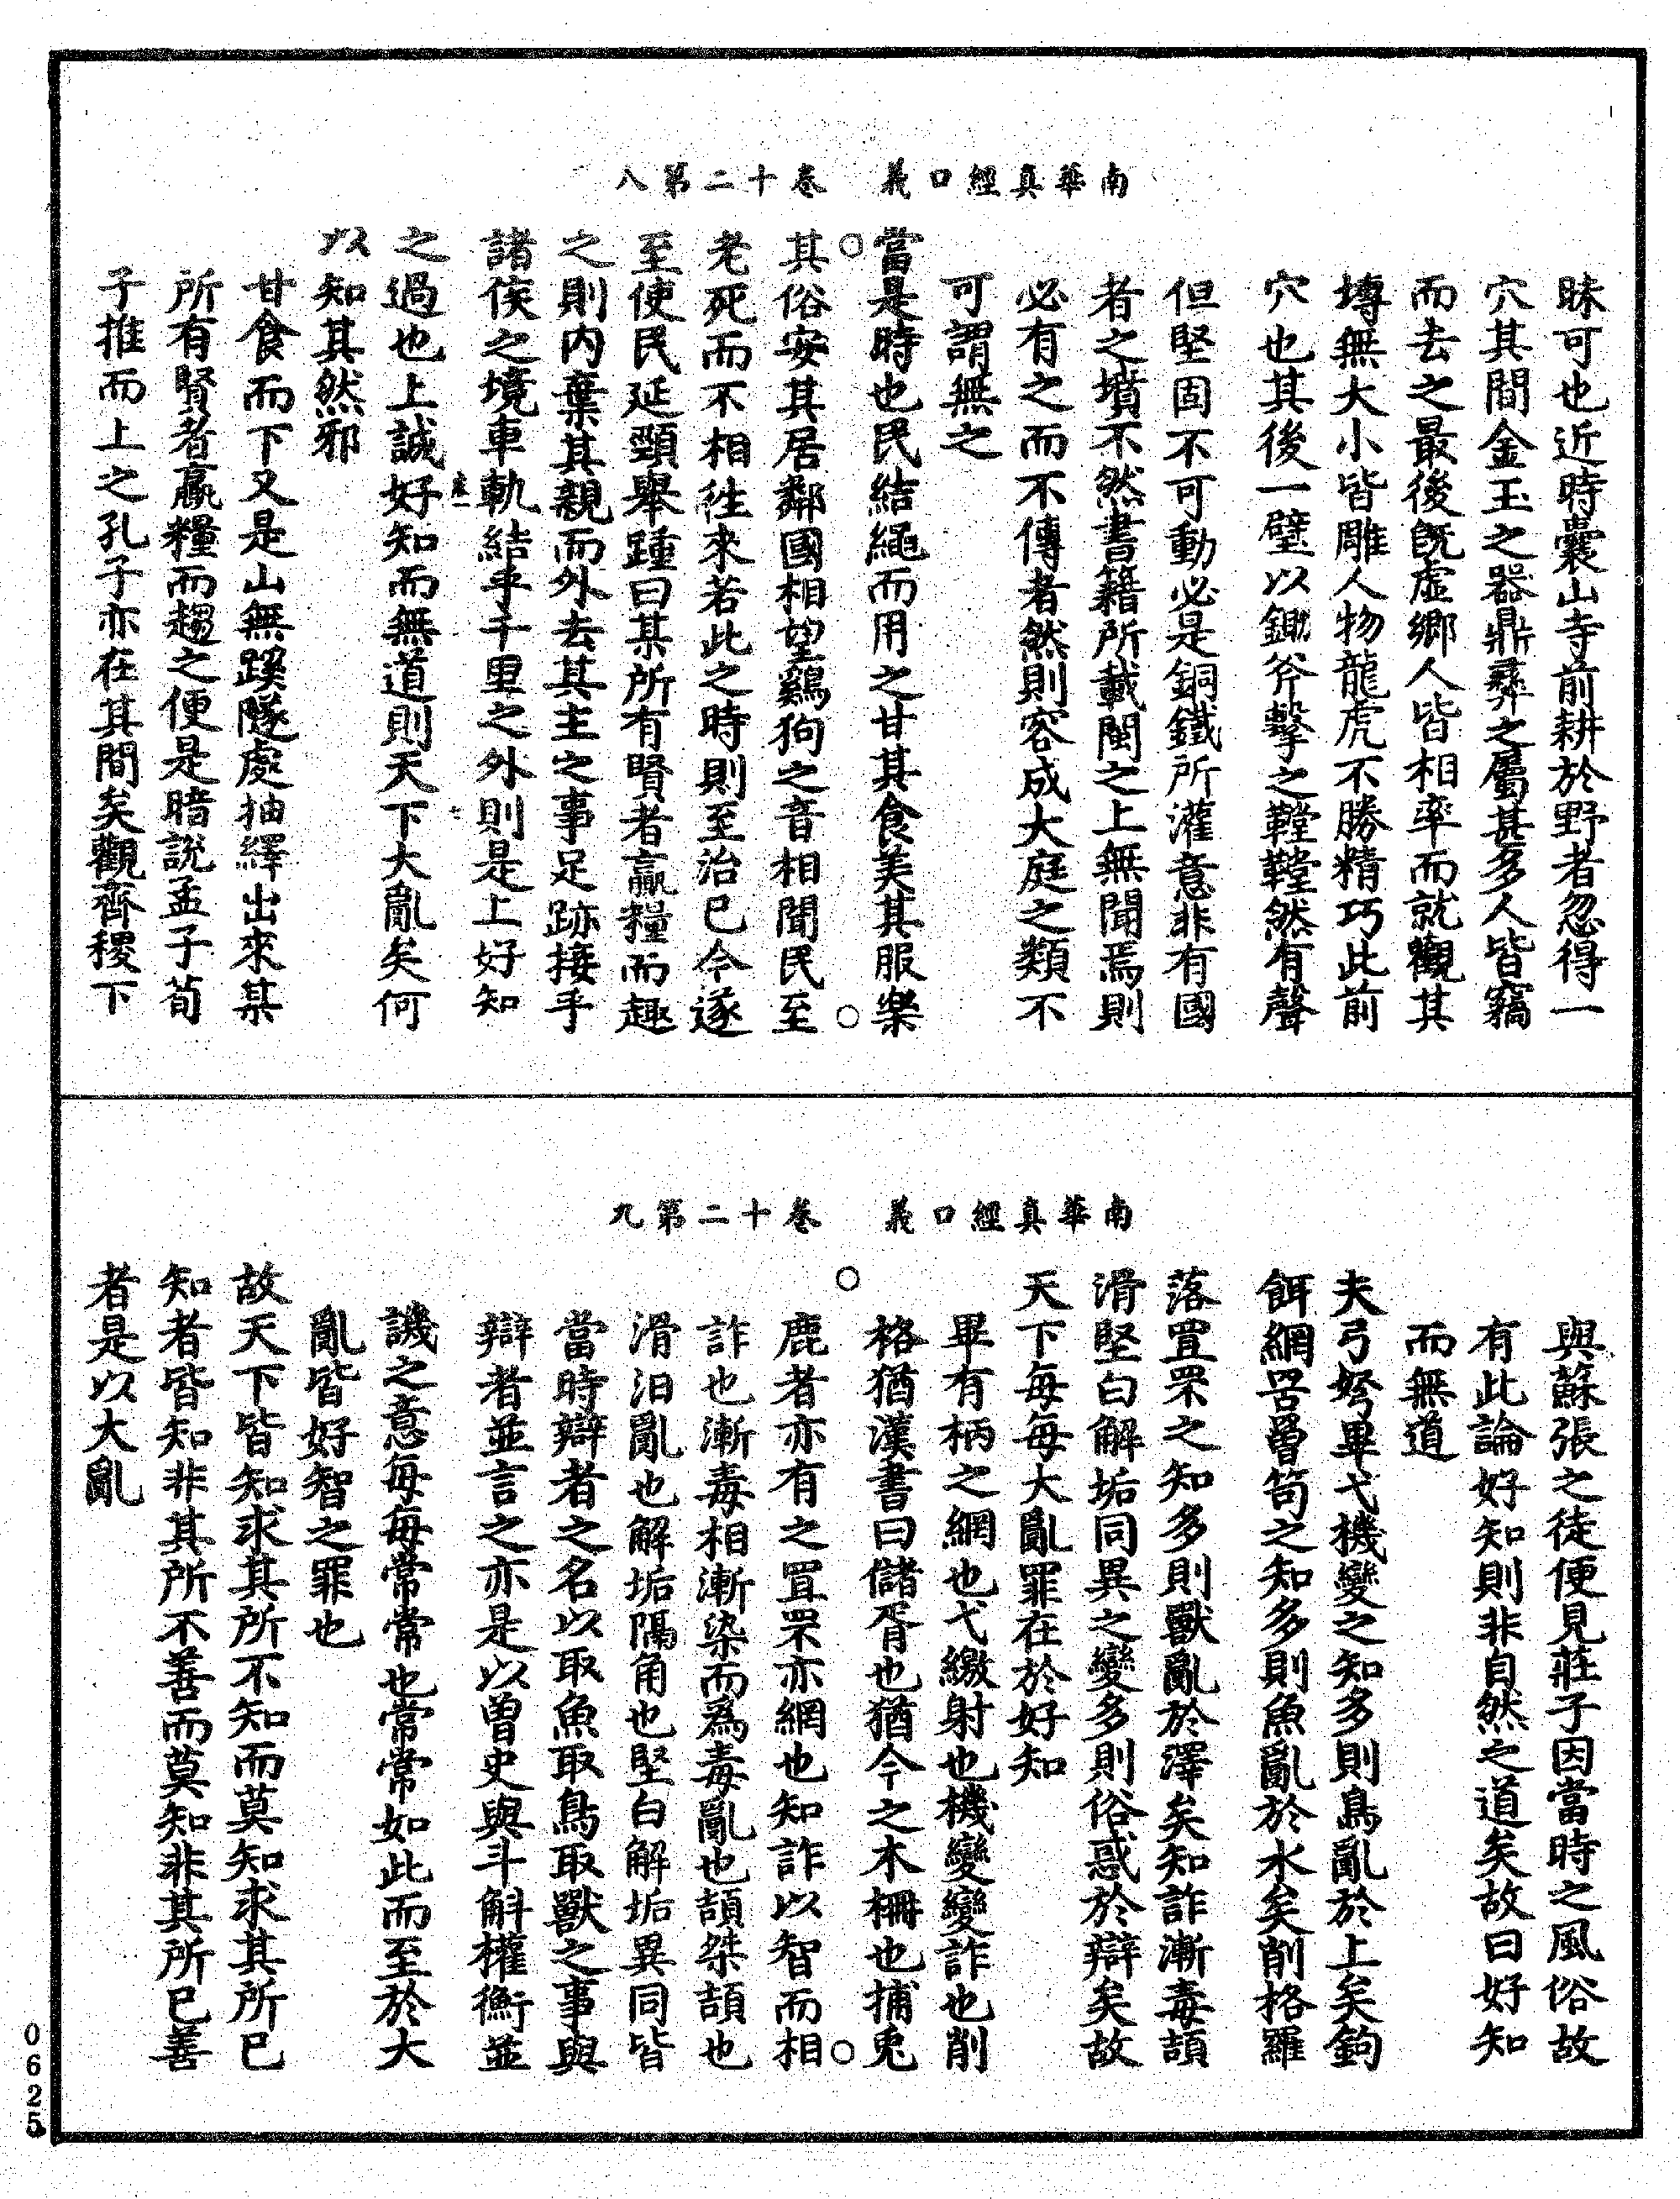 南華真經口義　卷十二第八
昧可也近時囊山寺前耕於野者忽得一
穴其間金玉之器鼎彝之屬甚多人皆竊
而去之最後既虛鄉人皆相率而就觀其
塼無大小皆雕人物龍虎不勝精巧此前
穴也其後一壁以鋤斧擊之鞺鞺然有聲
但堅固不可動必是銅鐵所灌意非有國
者之墳不然書籍所載閩之上無聞焉則
必有之而不傳者然則容成大庭之類不
可謂無之
當是時也民結繩而用之甘其食美其服樂
其俗安其居鄰國相望雞狗之音相聞民至
老死而不相徃來若此之時則至治已今遂
至使民延頸舉踵曰某所有賢者贏糧而趣
之則内棄其親而外去其主之事足跡接乎
諸侯之境車軌結乎千里之外則是上好知
之過也上誠好知而無道則天下大亂矣何
以知其然邪
甘食而下又是山無蹊隧處抽繹出來某
所有賢者贏糧而趨之便是暗說孟子荀
子推而上之孔子亦在其間矣觀齊稷下
南華真經口義　卷十二第九
與蘇張之徒便見莊子因當時之風俗故
有此論好知則非自然之道矣故曰好知
而無道
夫弓弩畢弋機變之知多則鳥亂於上矣鉤
餌網罟罾笱之知多則魚亂於水矣削格羅
落罝罘之知多則獸亂於澤矣知詐漸毒頡
滑堅白解垢同異之變多則俗惑於辯矣故
天下每每大亂罪在於好知
畢有柄之網也弋繳射也機變變詐也削
格猶漢書曰儲胥也猶今之木柵也捕兎
鹿者亦有之罝罘亦網也知詐以智而相
詐也漸毒相漸染而為毒亂也頡桀頡也
滑汩亂也解垢隔角也堅白解垢異同皆
當時辯者之名以取魚取鳥取獸之事與
辯者並言之亦是以曾史與斗斛權衡並
譏之意每每常常也常常如此而至於大
亂皆好智之罪也
故天下皆知求其所不知而莫知求其所已
知者皆知非其所不善而莫知非其所已善
者是以大亂
0625